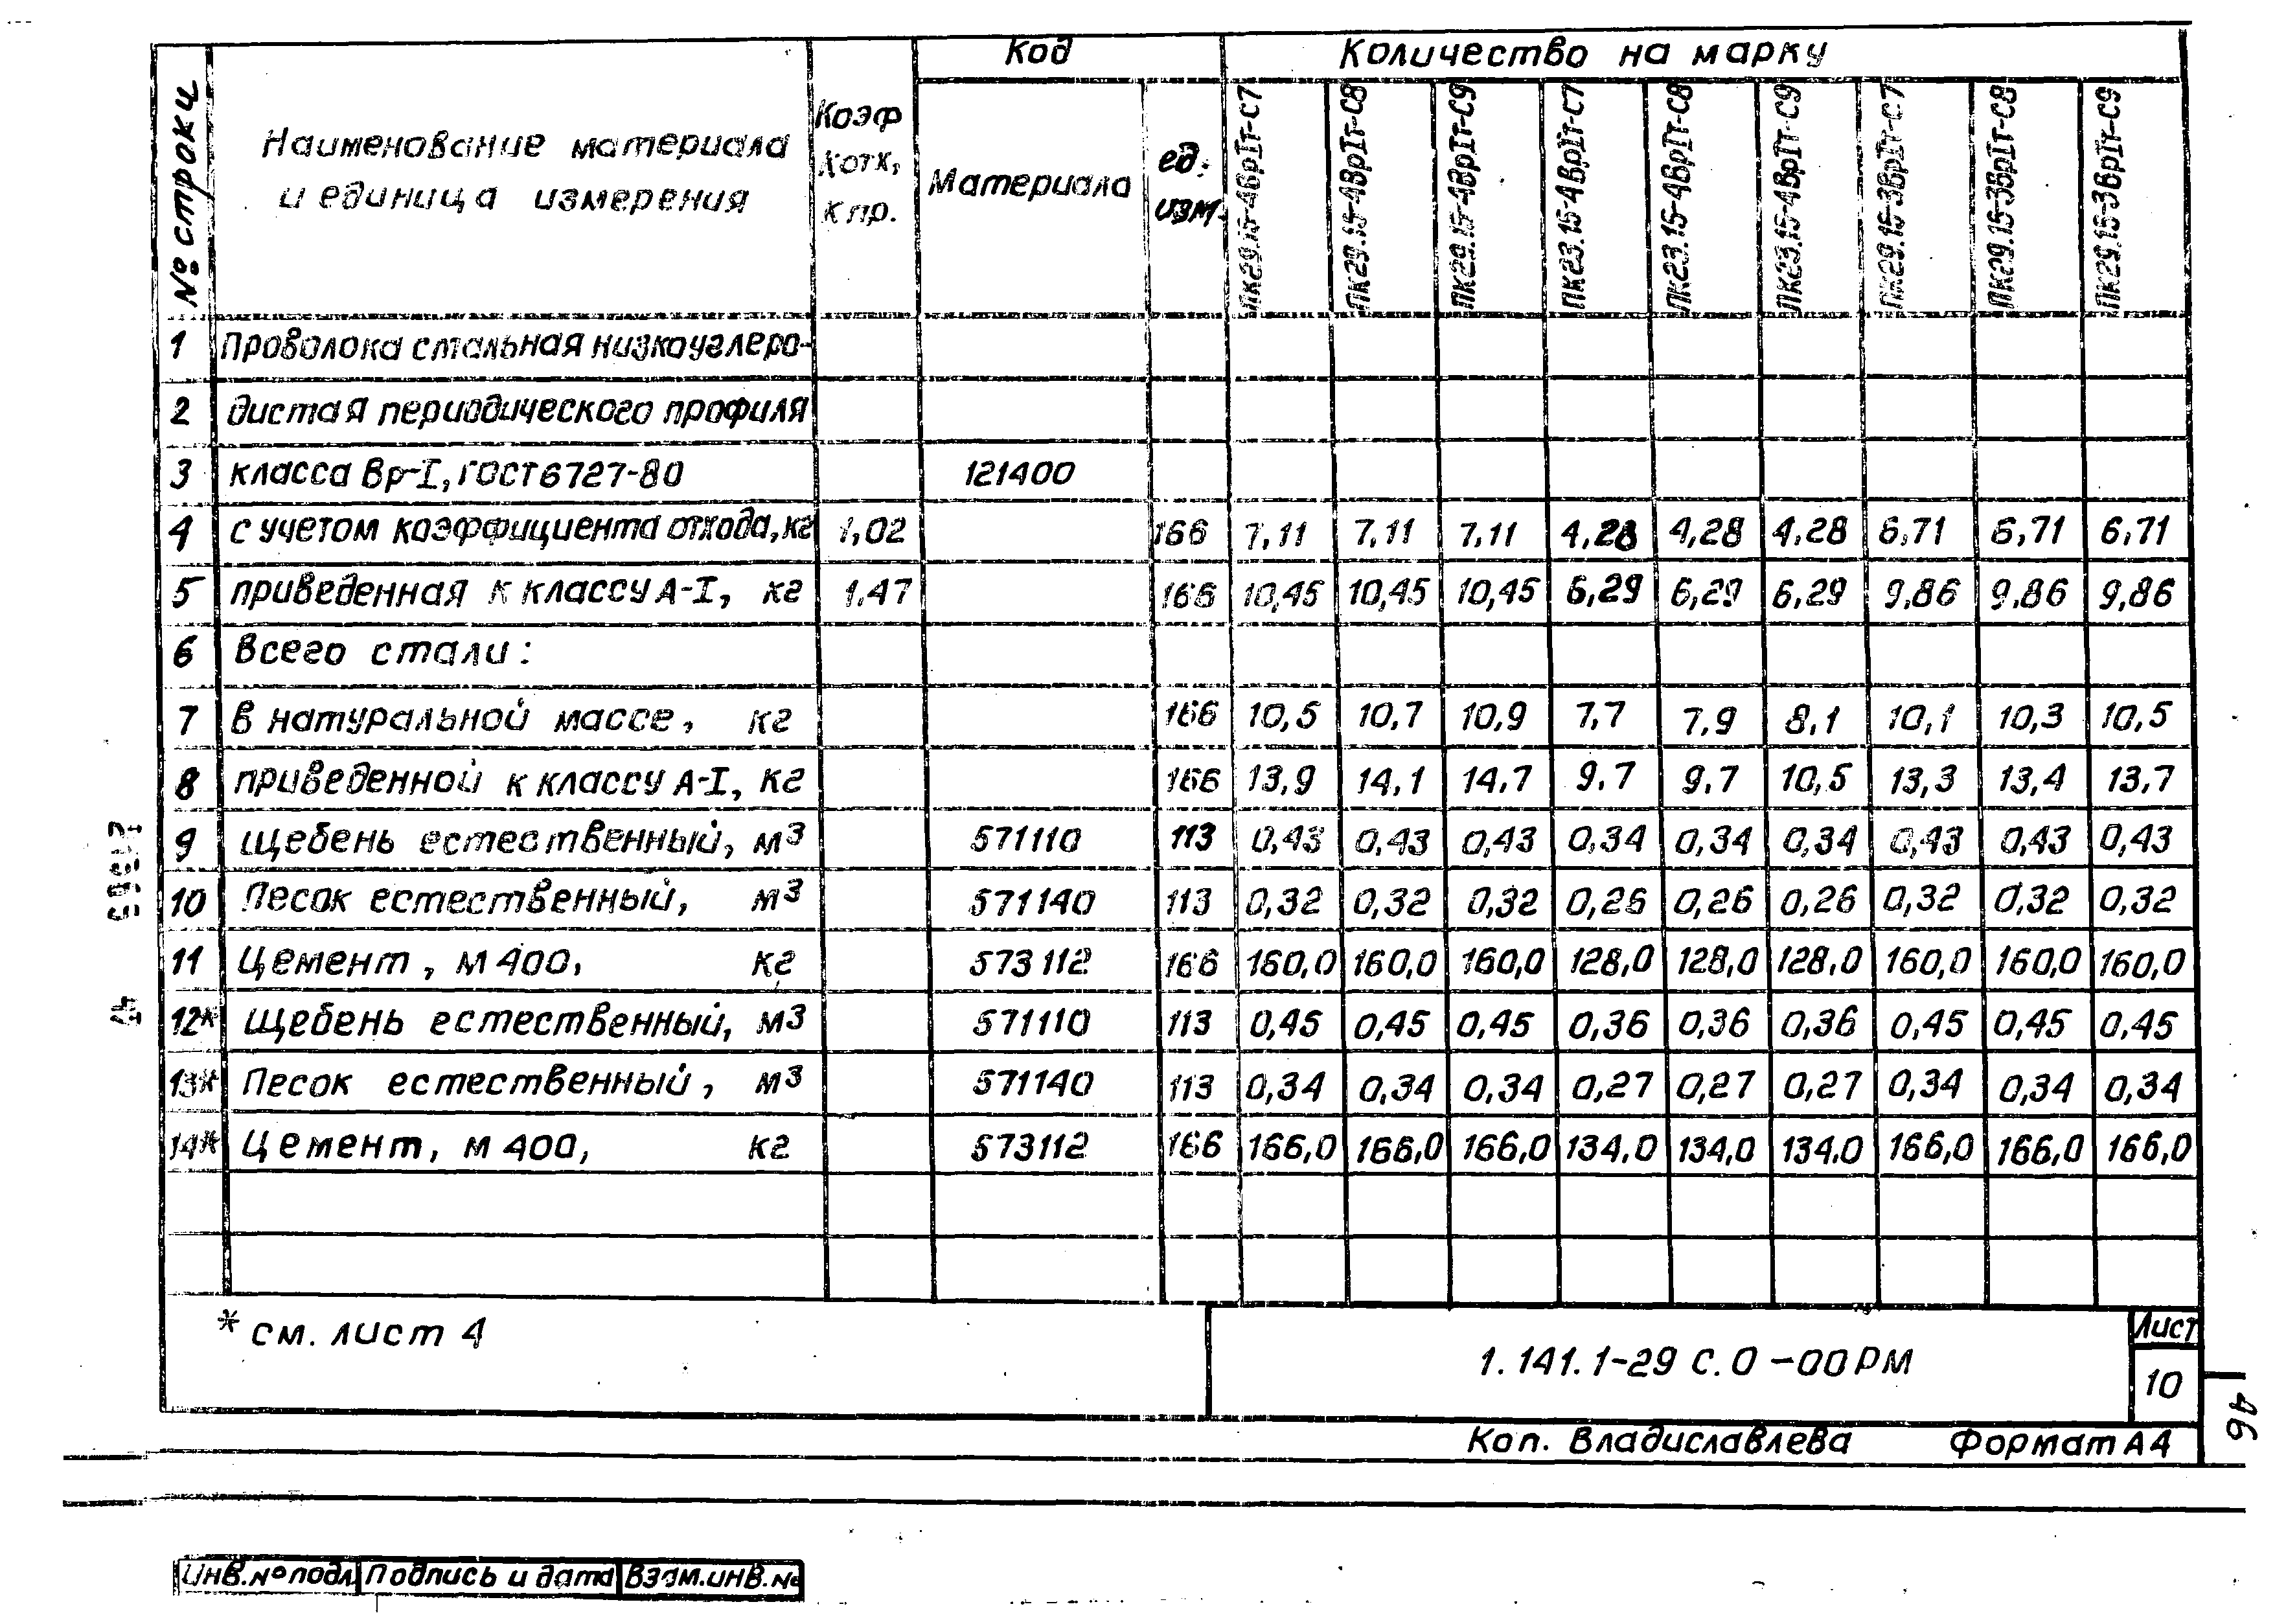 № строки | Наименование материала и единица измерения | Коэф Котх, Кпр. | Код | Количество на марку
Материала | ед. изм. | ПК29.15-4ВрIт-С7 | ПК29.15-4ВрIт-С8 | ПК29.15-4ВрIт-С9 | ПК23.15-4ВрIт-С7 | ПК23.15-4ВрIт-С8 | ПК23.15-4ВрIт-С9 | ПК29.15-3ВрIт-С7 | ПК29.15-3ВрIт-С8 | ПК29.15-3ВрIт-С9
1 Проволока стальная низкоуглеро-
2 дистая периодического профиля
3 класса Вр-I, ГОСТ 6727-80 121400
4 с учетом коэффициента отхода, кг 1,02 166 7,11 7,11 7,11 4,28 4,28 4,28 6,71 6,71 6,71
5 приведенная к классу А-I, кг 1.47 166 10,45 10,45 10,45 6,29 6,29 6,29 9,86 9.86 9,86
6 всего стали:
7 в натуральной массе, кг 166 10,5 10,7 10,9 7,7 7,9 8,1 10,1 10,3 10,5
8 приведенной к классу А-I, кг 166 13,9 14,1 14,7 9,7 9,7 10,5 13,3 13,4 13,7
9 щебень естественный, м3 571110 113 0,43 0,43 0,43 0,34 0,34 0,34 0,43 0,43 0,43
10 Песок естественный, м3 571140 113 0,32 0,32 0,32 0,26 0,26 0,26 0,32 0,32 0,32
11 Цемент, М 400, кг 573112 166 160,0 160,0 160,0 128,0 128,0 128,0 160,0 160,0 160,0
12* щебень естественный, м3 571110 113 0,45 0,45 0,45 0,36 0,36 0,36 0,45 0,45 0,45
13* Песок естественный, м3 571140 113 0,34 0,34 0,34 0,27 0,27 0,27 0,34 0,34 0,34
14* Цемент, М 400, кг 573112 166 166,0 166,0 166,0 134.0 134,0 134.0 166,0 166,0 166,0
* см. лист 4
1.141.1-29 с.0 -00РМ
Лист
10
46
Коп. Владиславлева Формат А4
Инв.№подл. Подпись и дата Взам.инв.№